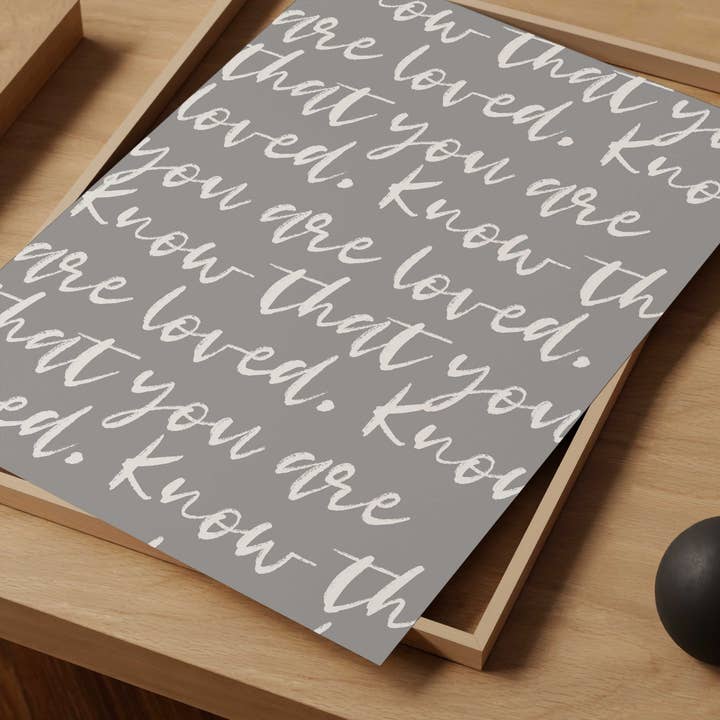 now that yo
are loved. Kno
that you are
loved. Know th
you are loved.
Know that you
are loved. Know
that you are
ed. Know th